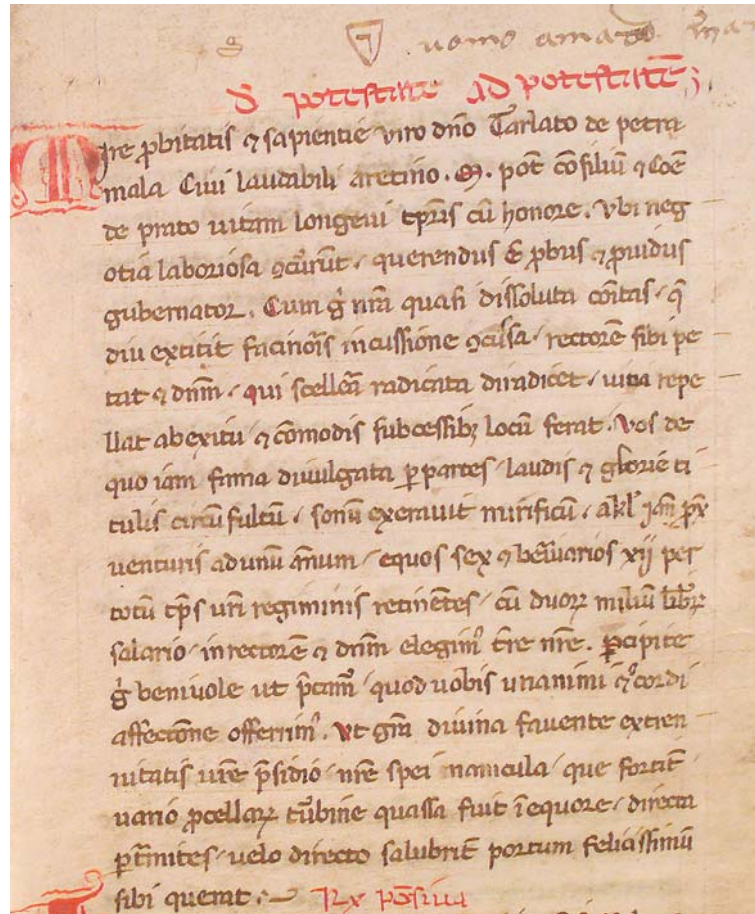 uomo amato
De potestate ad potestatē;
Mire ꝓbitatis ⁊ sapientie viro dn̄o Tarlato de petra
mala Ciui laudabili aretino. M. pot̄ cōsiliū ⁊ Cōe
de prato uitam longeui tp̄ris cū honore. Vbi neg
otia laboriosa ꝯcurūt / querendus ē ꝓbus ⁊ ꝓuidus
gubernator. Cum g̊ nr̄a quasi dissoluta cōitas / q̄
diu extitit facinoꝝ incussione ꝯcussa / rectorē sibi pe
tat ⁊ dn̄m / qui scellera radicata diradicet / uitia repe
llat ab exitu / ⁊ cōmodis subcessibꝫ locū ferat. Vos de
quo iam fama diuulgata ꝑ partes / laudis ⁊ glorie ti
tulis circūfultū / sonū exerauit mirificū / a kl̄ ian̄ ꝓx
uenturis ad unū an̄num / equos sex ⁊ beruarios xij per
totū tp̄s ur̄i regiminis retinētes / cū duoꝝ miliū libꝝ
salario / in rectorē ⁊ dn̄m elegimꝰ tr̄e nr̄e. ꝑcipite
g̊ beniuole ut p̄camꝰ / quod uobis unanimi ⁊ ꝯcordi
affectōne offerimꝰ. Ut gr̄a diuina fauente ex tren
uitatis ur̄e p̄sidio / nr̄e spei nauicula / que fortit̄
uario ꝓcellaꝝ tūbine quassa fuit ī equore / directa
ꝑ t̄mites / uelo directo salubrit̄ portum felicissimū
sibi querat. Rx pōsiua